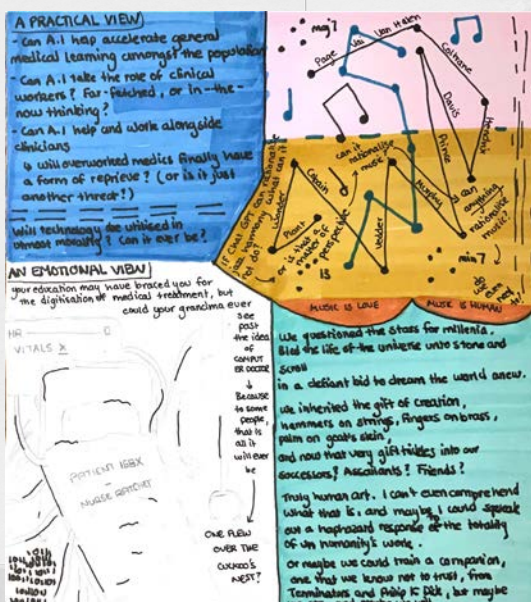 A PRACTICAL VIEW
- Can A.I help accelerate general
medical learning amongst the population
- Can A.I take the role of clinical
workers? Far-fetched, or in-the-
now thinking?
- Can A.I help and work alongside
clinicians
↳ will overworked medics finally have
a form of reprieve? (or is it just
another threat!)
Will technology be utilised in
utmost morality? Can it ever be?
maj?
Page
Vai
Van Halen
Coltrane
Davis
Hendrix
Prime
can it
rationalise
music?
If Chat GPT can rationalise
jazz harmony what can it
not do?
Wonder
Cobain
Plant
or is that a
matter of
perspective
Is
Vedder
Murphy
can
anything
rationalise
music?
min7
do
we even
need
to?
MUSIC IS LOVE
MUSIC IS HUMAN
AN EMOTIONAL VIEW
your education may have braced you for
the digitisation of medical treatment, but
could your grandma ever
see
past
the idea
of
COMPUT
ER DOCTOR
↓
Because
to some
people,
that is
all it
will ever
be
ONE FLEW
OVER THE
CUCKOO'S
NEST?
HR
VITALS X
PATIENT
NURSE RATCHET
We questioned the stars for millenia.
Bled the life of the universe unto stone and
scroll
in a defiant bid to dream the world anew.
We inherited the gift of creation,
hammers on strings, fingers on brass,
palm on goat's skin,
and now that very gift trickles into our
successors? Assailants? Friends?
Truly human art. I can't even comprehend
what that is, and maybe I could speak
out a haphazard response of the totality
of us humanity's work.
Or maybe we could train a companion,
one that we know not to trust, from
Terminators and Philip K Dick, but maybe